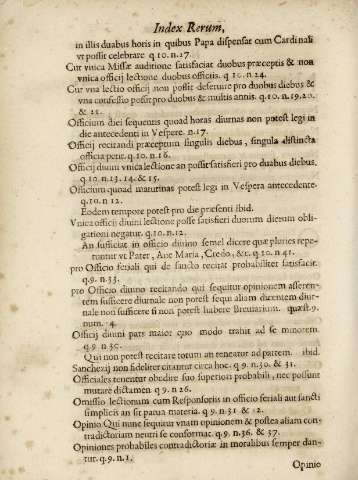 Index Rerum,
in illis duabus horis in quibus Papa dispensat cum Cardinali
vt possit celebrare q 10. n. 27.
Cur vnica Missæ auditione satisfaciat duobus præceptis & non
vnica officij lectione duobus officiis. q 10. n 24.
Cur vna lectio officij non possit deseruire pro duobus diebus &
vna confessio possit pro duobus & multis annis. q 10. n. 19. 20.
& 21.
Officium diei sequentis quoad horas diurnas non potest legi in
die antecedenti in Vespere. n. 17.
Officij recitandi præceptum singulis diebus, singula distincta
officia petit. q 10. n. 16.
Officij diuini vnica lectione an possit satisfieri pro duabus diebus.
q. 10 n. 23. 14. & 15.
Officium quoad maturinas potest legi in Vespera antecedente.
q. 10. n 12.
Eodem tempore potest pro die præsenti ibid.
Vnica officij diuini lectione posse satisfieri duorum dierum obligationi
negatur. q 10. n. 12.
An sufficiat in officio diuino semel dicere quæ pluries reperiuntur
vt Pater, Aue Maria, Credo, &c. q 10. n 41.
pro Officio feriali qui de sancto recitat probabiliter satisfacit.
q 9. n 33.
pro Officio diuino recitando qui sequitur opinionem asserentem
sufficere diurnale non potest sequi aliam dicentem diurnale
non sufficere si non potest habere Breuiarium. quæst 9.
num. 4.
Officij diuini pars maior quo modo trahit ad se minorem.
q. 9 n 30.
Qui non potest recitare totum an teneatur ad partem. ibid.
Sanchezij non fideliter citantur circa hoc. q 9. n. 30. & 31.
Officiales tenentur obedire suo superiori probabili, nec possunt
mutare dictamen q 9. n 26.
Omissio lectionum cum Responsoriis in officio feriali aut sancti
simplicis an sit parua materia. q 9. n 31 &
Opinio Qui nunc sequitur vnam opinionem & postea aliam contradictoriam
neutri se conformat. q 9. n. 36. & 37.
Opiniones probabiles contradictoriæ in moralibus semper dantur.
q. 9. n. 1.
Opinio